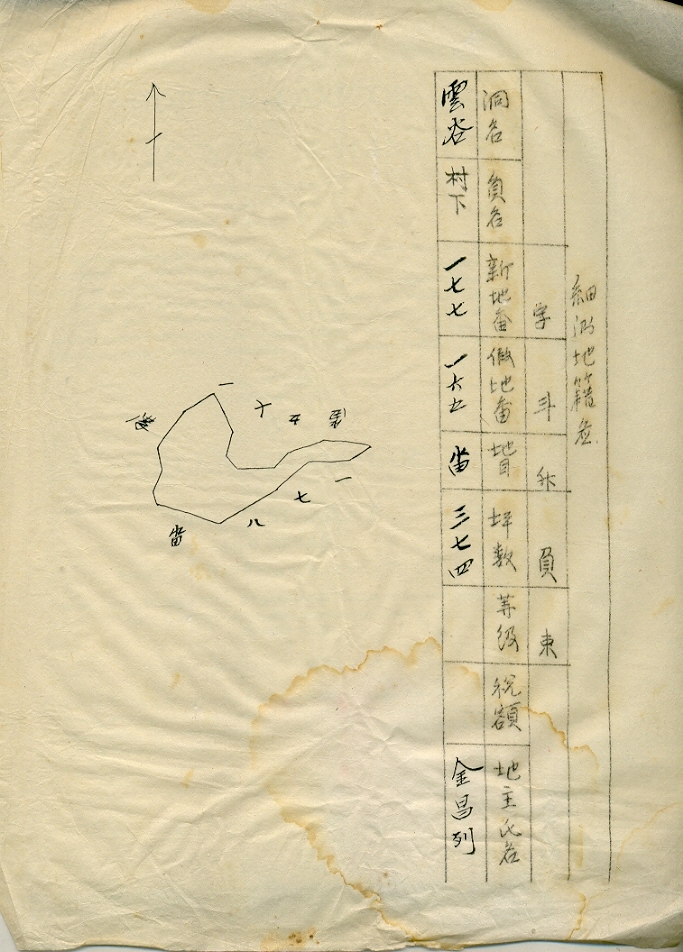 細測地籍表
字 斗 負 束
洞名 員名 新地番 假地番 地目 坪数 等級 税額 地主氏名
雲谷 村下 一七七 一六五 畓 三七四 金昌列
一
十
五
一
七
八
畓